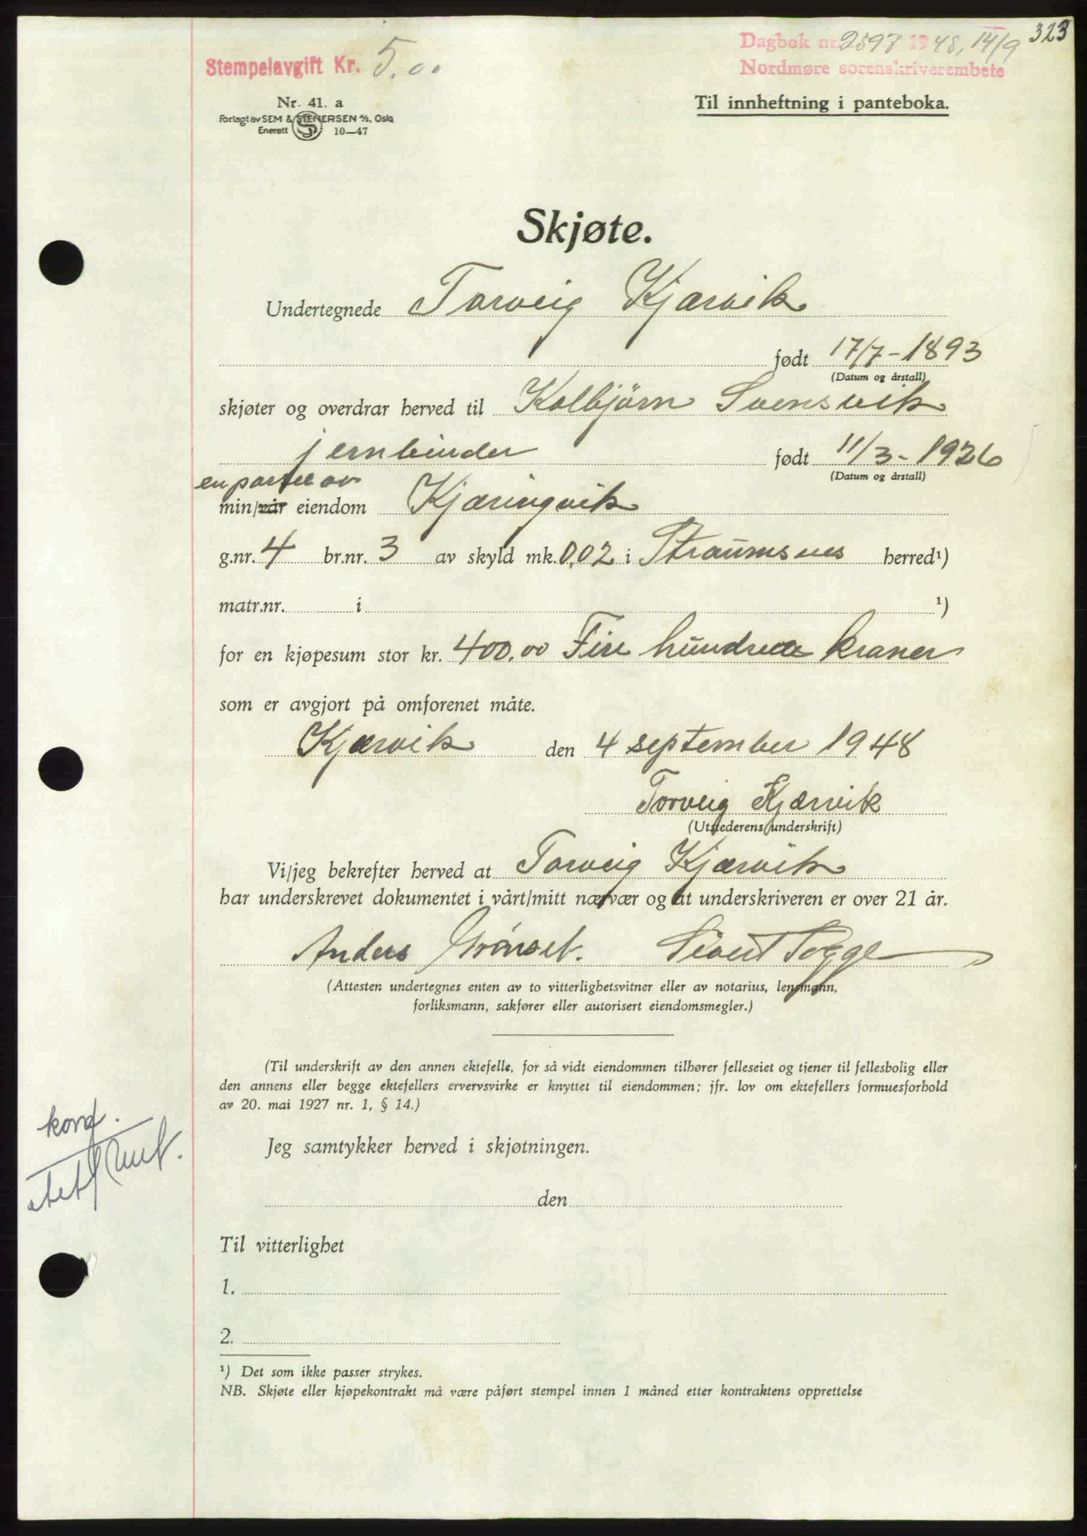 323
Dagbok nr. 2597 1948, 14/9
Nordmøre sorenskriverembete
Stempelavgift Kr. 5.00
Nr. 41. a
Forlagt av SEM & STENERSEN A/S, Oslo
Enerett 10—47
Til innheftning i panteboka.
Skjøte.
Undertegnede Torveig Kjærvik
født 17/7-1893
(Datum og årstall)
skjøter og overdrar herved til Kolbjörn Svensvik
jernbinder født 11/3-1926
(Datum og årstall)
en parsel av
min/vår eiendom Kjæringvik
g.nr. 4 br.nr. 3 av skyld mk. 0,02 i Straumsnes herred¹)
matr.nr. i ¹)
for en kjøpesum stor kr. 400.00 Fire hundrede kroner
som er avgjort på omforenet måte.
Kjærvik den 4 september 1948
Torveig Kjærvik
(Utstederens underskrift)
Vi/jeg bekrefter herved at Torveig Kjærvik
har underskrevet dokumentet i vårt/mitt nærvær og at underskriveren er over 21 år.
Anders Grönset. Sivert Togge
(Attesten undertegnes enten av to vitterlighetsvitner eller av notarius, lensmann,
forliksmann, sakfører eller autorisert eiendomsmegler.)
(Til underskrift av den annen ektefelle, for så vidt eiendommen tilhører felleseiet og tjener til fellesbolig eller
den annens eller begge ektefellers ervervsvirke er knyttet til eiendommen; jfr. lov om ektefellers formuesforhold
av 20. mai 1927 nr. 1, § 14.)
kond.
Jeg samtykker herved i skjøtningen.
den
Til vitterlighet
1.
2.
¹) Det som ikke passer strykes.
NB. Skjøte eller kjøpekontrakt må være påført stempel innen 1 måned etter kontraktens opprettelse